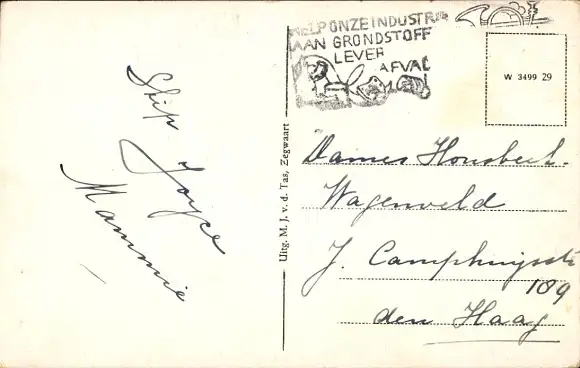 HELP ONZE INDUSTRIE
AAN GRONDSTOFF
LEVER
AFVAL
W 3499 29
Skip
Joyce
Mammie
Uitg. M. J. v. d. Tas, Zegwaart
Dames Honsbeek.
Wagenveld
J. Camphuijsstr
109
den Haag